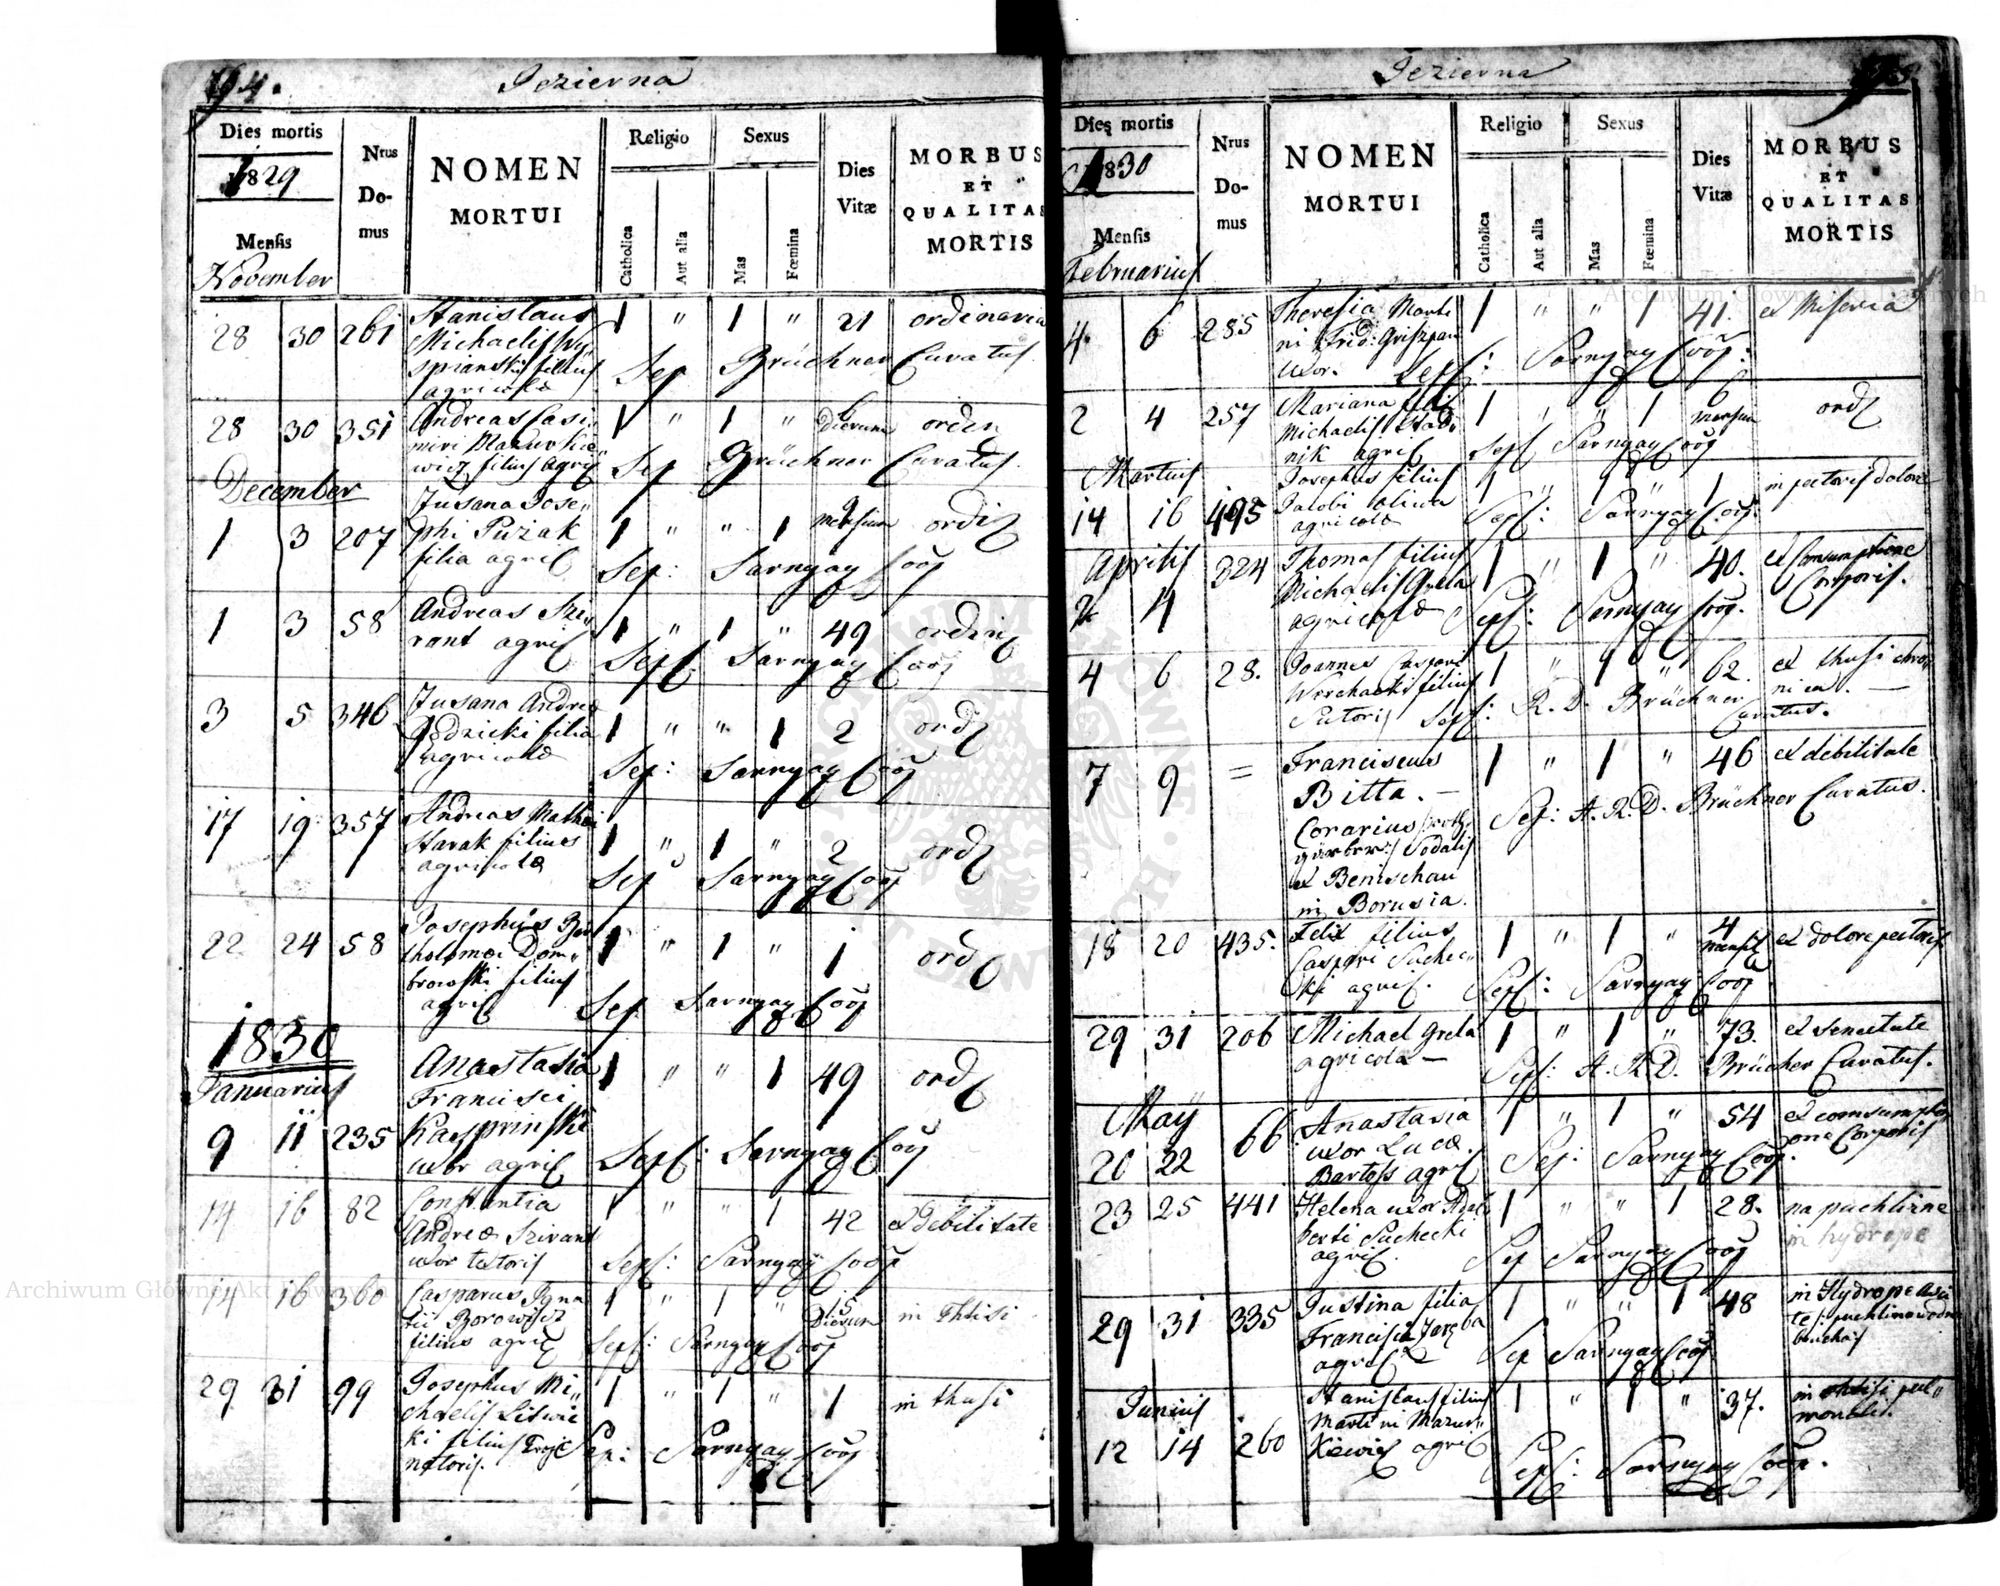 194.
Jezierna
Dies mortis
1829
Mensis
November
Nrus
Do-
mus
NOMEN
MORTUI
Religio
Catholica
Aut alia
Sexus
Mas
Fœmina
Dies
Vitæ
MORBUS
ET
QUALITAS
MORTIS
28 30 261 Stanislaus 1 " 1 " 21 ordinaria
Michaelis Wy
spianski filius
agricolæ
Sep Brückner Curatus
28 30 351 Andreas Casi 1 " 1 " 6 Dierum orden
miri Mazurkie
wicz filius agric
Sep Brückner Curatus.
December
1 3 207 Zusana Jose 1 " " 1 9 mensium
phi Puzak
filia agric
Sep: Sarnyay Coop
1 3 58 Andreas Szi 1 " 1 " 49 ordin
rant agric
Sep: Sarnyay Coop
3 5 346 Zusana Andreæ 1 " " 1 2 ord
filia
agricolæ
Sep: Sarnyay Coop
17 19 357 Andreas Mathei 1 " 1 " 2 ord
Starak filius
agricolæ
Sep Sarnyay Coop
22 24 58 Josephus Bar 1 " 1 " 1 ord
tholomæi Dom
browski filius
agric
Sep Sarnyay Coop
1830
Januarius
9 11 235 Anastasia 1 " " 1 49 ord
Francisci
Kasprinski
uxor agric
Sep: Sarnyay Coop
14 16 82 Constantia 1 " " 1 42 ex Debilitate
Andreæ Szirant
uxor textoris
Sep: Sarnyay Coop
14 16 360 Casparus Igna 1 " 1 " 15 Dierum in Phtisi
tii Borowicz
filius agric
Sep: Sarnyay Coop
29 31 99 Josephus Mi 1 " 1 " 1 in thusi
chaelis Liswic
ki filius
Sep: Sarnyay Coop
Jezierna
Dies mortis
1830
Mensis
Februarius
Nrus
Do-
mus
NOMEN
MORTUI
Religio
Catholica
Aut alia
Sexus
Mas
Fœmina
Dies
Vitæ
MORBUS
ET
QUALITAS
MORTIS
4 6 285 Theresia Marti 1 " " 1 41. ex Miseria
ni Frid: Griszpan
uxor.
Sep: Sarnyay Coop:
2 4 257 Mariana filia 1 " " 1 6 mensium ord
Michaelis Stad
nik agric
Sep Sarnyay Coop
Martius
14 16 495 Josephus filius 1 " 1 " 1 in pectoris dolore
Jacobi Oliwa
agricolæ
Sep: Sarnyay Coop.
Aprilis
2 4 324 Thomas filius 1 " 1 " 40. ex Comsumptione
Michaelis Grela Corporis.
agricolæ
Sep: Sarnyay Coop.
4 6 28. Joannes Caspari 1 " 1 " 62. ex thusi chro
filius nica.
Sutoris Sep: R. D. Brückner
Curatus.
7 9 = Franciscus 1 " 1 " 46 ex debilitate
Bitta. —
Corarius
Sodalis
ex Benischau
in Borusia.
Sep: A. R. D. Brückner Curatus.
18 20 435. Felix filius 1 " 1 " 4 ex dolore pectoris
Caspari Suchec
ki agric.
Sep: Sarnyay Coop
29 31 206 Michael Grela 1 " 1 " 73. ex senectute
agricola —
Sep: A. R. D. Brücher Curatus.
May
20 22 66 Anastasia 1 " 1 " 54 ex comsumpti
uxor Lucæ one Corporis
Bartoss agric
Sep: Sarnyay Coop.
23 25 441 Helena uxor Adal 1 " " 1 28. na puchline
berti Suchecki in hydrope
agric.
Sep Sarnyay Coop
29 31 335 Justina filia 1 " " 1 48 in Hydrope Asci
Francisci Jaręba te puchlina wodna
agric brucha
Sep Sarnyay Coop
Junius
12 14 260 Stanislaus filius 1 " 1 " 37. in phtisi pul
Martini Mazur monali.
kiewicz agric
Sep: Sarnyay Coop.
Archiwum Główne Akt Dawnych
Archiwum Główne Akt Dawnych
ARCHIWUM GŁÓWNE AKT DAWNYCH